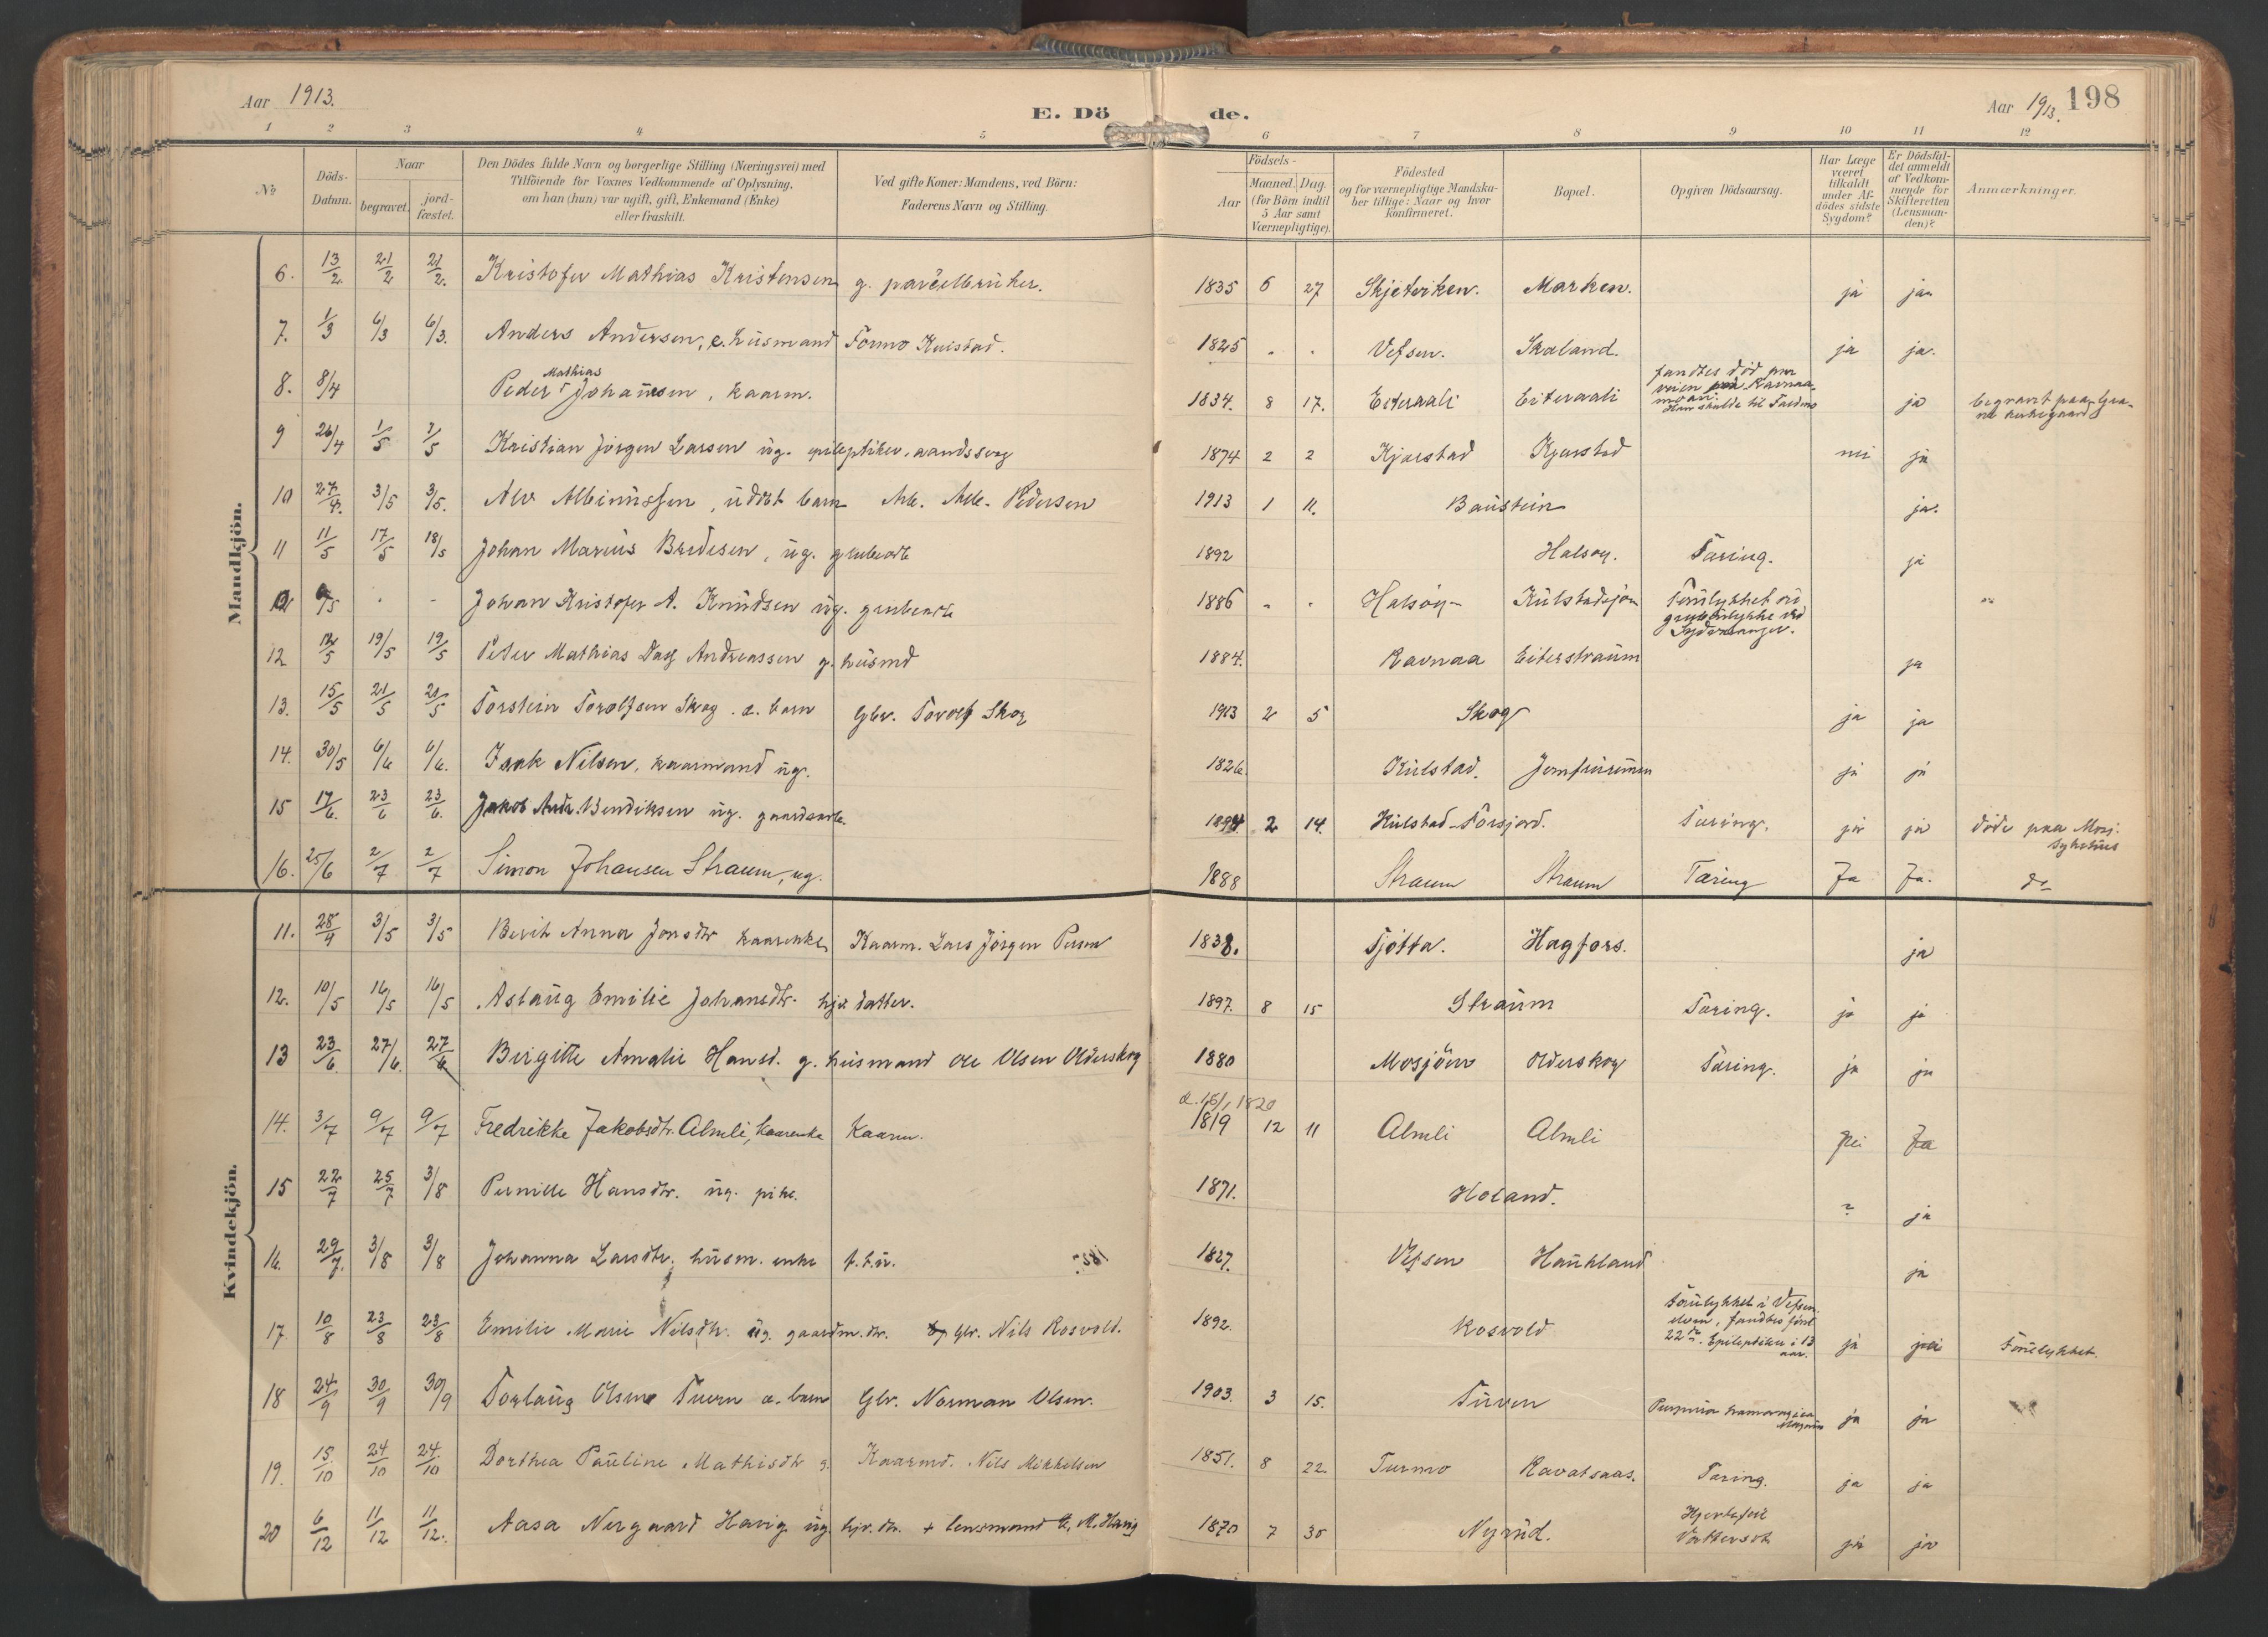 Aar 1913.
E. Dö de.
Aar 1913. 198
1 2 3 4 5 6 7 8 9 10 11 12
No
Döds-Datum.
Naar
begravet.
jord-fæstet.
Den Dödes fulde Navn og borgerlige Stilling (Næringsvei) med
Tilföiende for Voxnes Vedkommende af Oplysning,
om han (hun) var ugift, gift, Enkemand (Enke)
eller fraskilt.
Ved gifte Koner: Mandens, ved Börn:
Faderens Navn og Stilling.
Födsels-
Aar
Maaned. Dag.
(for Börn indtil
5 Aar samt
Værnepligtige).
Födested
og for værnepligtige Mandska-
ber tillige: Naar og hvor
konfirmeret.
Bopæl.
Opgiven Dödsaarsag.
Har Læge
været
tilkaldt
under Af-
dödes sidste
Sygdom?
Er Dödsfal-
det anmeldt
af Vedkom-
mende for
Skifteretten
(Lensman-
den)?
Anmærkninger.
Mandkjön.
6. 13/2 21/2 21/2. Kristofer Mathias Kristensen g. parcelbruker. 1835 6 27 Marken. ja ja
7. 1/3 6/3 6/3. Anders Andersen, e. husmand Formo 1825 " " Vefsen. Skaland. ja ja.
8. 8/4 Peder Mathias Johansen, kaarm. 1834. 8 17. Eiteraali Eiteraali fandtes död paa veien ja begravt paa kirkegaard
9 26/4 1/5 1/5 Kristian Jörgen Larsen ug. epileptiker, aandssvag 1874 2 2 Kjærstad Kjærstad nei ja
10 27/4. 3/5 3/5. Alv Albinussen, udöbt barn Arb. Pedersen 1913 1 11. Baustein ja.
11 11/5 17/5 18/5 Johan Marius Bredesen, ug. grubearb 1892 Halsøy. Tæring. ja
Johan Kristofer A. Knudsen ug. grubearb 1886 " " Halsøy Kulstadsjøen Forulykket
12 12/5 19/5 19/5 Peter Mathias Dass Andreassen g. husmd 1884. Ravnaa Eiterstraum ja
13. 15/5 21/5 21/5 Torstein Torolfsen Skog. æ. barn Gbr. Torolf Skog 1913 2 5 Skog ja ja
14. 30/5 6/6 6/6. Isak Nilsen, kaarmand ug. 1826. Kulstad. ja ja
15 17/6. 23/6 23/6. Jakob Andr. Bendiksen ug. gaardsarb. 1894 2 14. Kulstad- Tæring. ja ja döde paa Mosj. sykehus
16. 25/6 2/7 2/7 Simon Johansen Straum, ug. 1888 Straum Straum Tæring Ja Ja. do
Kvindekjön.
11. 28/4 3/5 3/5 Berit Anna Jonsdtr kaarenke Kaarm. Lars Jörgen 1838. Tjötta. Hagfors. ja
12. 10/5 16/5 16/5 Aslaug Emilie Johansdtr. hjv. datter. 1897. 8 15 Straum Tæring. ja ja
13 23/6. 27/6. 27/6 Birgitte Amalie Hansd. g. husmand Ole Olsen Olderskog 1880 Mosjöen Olderskog Tæring. ja ja
14. 3/7 9/7 9/7 Fredrikke Jakobsdtr. Almli, kaarenke Kaarm. d. 16/1 1820 1819 12 11 Almli Almli Nei Ja
15 22/7 25/7 3/8 Pernille Hansdtr. ug. pike. 1871. Holand. ? ja
16. 29/7. 3/8 3/8 Johanna Larsdtr. husm. enke f.f.u. 1827. Vefsen Haukland ja
17. 10/8 23/8 23/8 Emilie Marie Nilsdtr. ug. gaardm. dtr. Gbr. Nils Kosvold. 1892. Kosvold Forulykket i Vefsen elven, fandtes först 22de. Epileptiker i 13 aar. ja Forulykket.
18 24/9 30/9 30/9 Torlaug Olsen Turen æ. barn Gbr. Norman Olsen. 1903. 3 15. Turen Purpura ja ja
19. 15/10 24/10 24/10 Dorthea Pauline Mathisdtr g. Kaarmd. Nils Mikkelsen 1851. 8 22. Turmo Kavatsaas. Tæring. ja ja
20 6/12 11/12 11/12. Aasa Nergaard Havig ug. hjv. dtr. + lensmand M. Havig 1870 7 30 Nyrud. Hjertefeil Vattersot ja ja